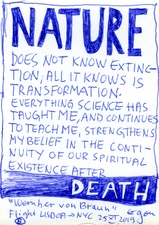 NATURE
DOES NOT KNOW EXTINC-
TION; ALL IT KNOWS IS
TRANSFORMATION.
EVERYTHING SCIENCE HAS
TAUGHT ME, AND CONTINUES
TO TEACH ME, STRENGTHENS
MY BELIEF IN THE CONTI-
NUITY OF OUR SPIRITUAL
EXISTENCE AFTER
DEATH
"Wernher von Braun"
Flight LISBOA → NYC 25 2019